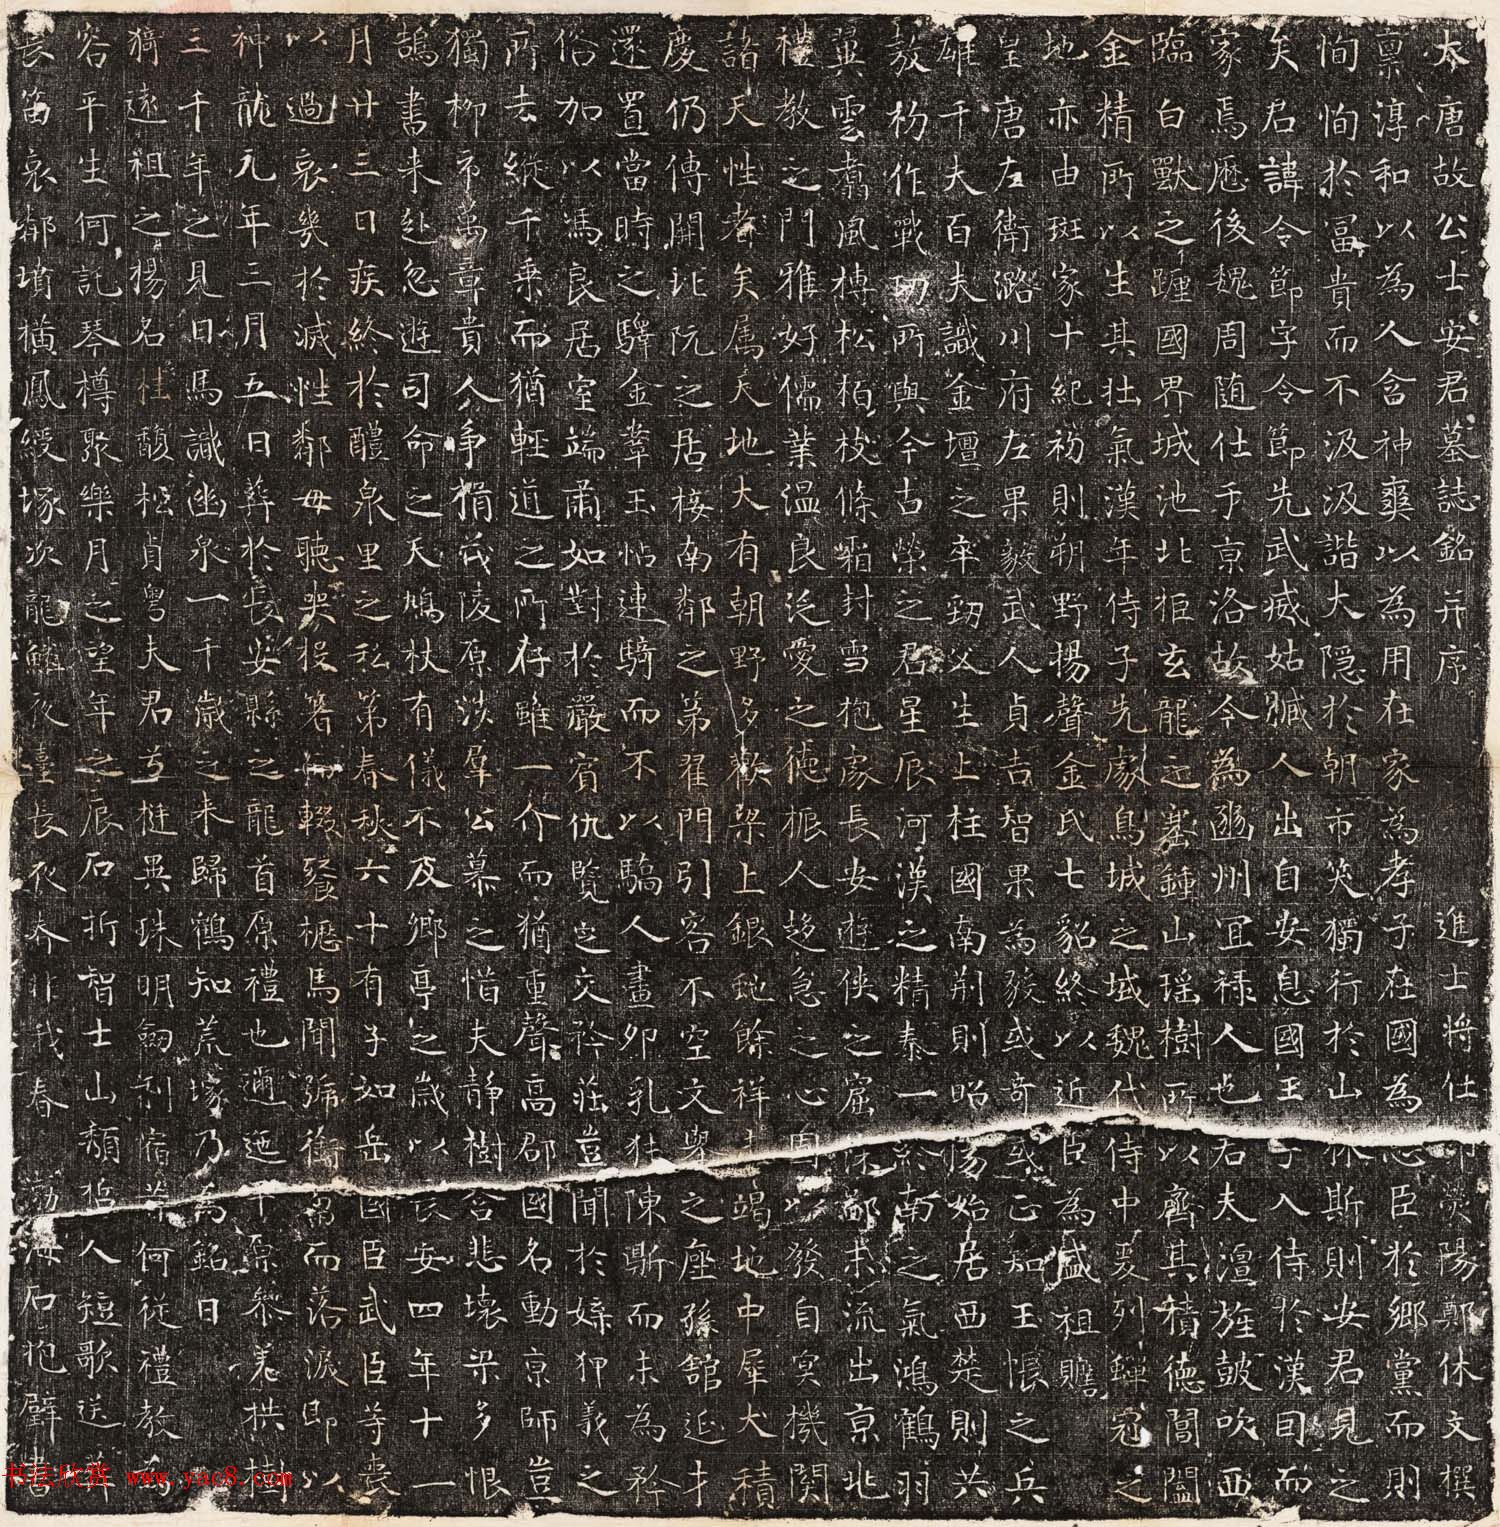 大唐故公士安君墓誌銘并序 進士將仕郎滎陽鄭休文撰
稟淳和以為人含神爽以為用在家為孝子在國為忠臣於鄉黨而則
恂恂於富貴而不汲汲諧大隱於朝市笑獨行於山林斯則安君見之
矣君諱令節字令節先武威姑臧人出自安息國王子入侍於漢因而
家焉歷後魏周隨仕于京洛故今為豳州宜祿人也若夫澶旌皷吹西
臨白獸之躔國界城池北拒玄龍之塞鍾山瑤樹所以齊其積德閶闔
金精所以生其壯氣漢年侍子先處鳥城之域魏代侍中爰列蟬冠之
地亦由班家十紀初則朔野揚聲金氏七貂終以近臣為盛祖瞻
皇唐左衛潞川府左果毅武人貞吉智果為毅或奇或正知玉帳之兵
雄千夫百夫識金壇之卒勁父生上柱國南荆則昭陽始居西楚則共
敖初作戰功所與今古榮之君星辰河漢之精泰一終南之氣鴻鶴羽
翼雲翥風摶松栢枝條霜封雪抱處長安遊俠之窟深鄙末流出京兆
禮教之門雅好儒業溫良泛愛之德振人趍急之心固以發自冥機關
諸天性者矣屬天地大有朝野多歡梁上銀虵餘祥未竭地中犀犬積
慶仍傳開北阮之居接南鄰之第翟門引客不空文舉之座孫館延才
還置當時之驛金鞌玉怗連騎而不以驕人畫夘乳狌陳鼎而未為矜
俗加以馮良居室端肅如對於嚴賓仇覽定交矜莊豈聞於媟狎義之
所去縱千乘而猶輕道之所存雖一介而猶重聲高郡國名動京師豈
獨柳市萬章貴人爭揖茂陵原涉羣公慕之惜夫靜樹含悲壞梁多恨
鵠書来赴忽遊司命之天鳩杖有儀不及鄉亭之歲以長安四年十一
月廿三日疾終於醴泉里之私第春秋六十有子如岳國臣武臣等喪
以過哀幾於滅性鄰母聽哭投箸而輟飡櫪馬聞號銜蒭而落淚即以
神龍元年三月五日葬於長安縣之龍首原禮也邐迤平原參差拱樹
三千年之見日馬識幽泉一千歲之来歸鶴知荒塚乃為銘曰
猗遠祖之揚名桂馥松貞粵夫君之挺異珠明劒利宿昔何從禮教為
容平生何託琴樽聚樂月之望年之辰石折智士山頹哲人短歌送葬
長笛哀鄰墳橫鳳綬塚次龍鱗夜臺長夜春非我春 渤海石抱璧書
書法欣赏 www.yac8.com